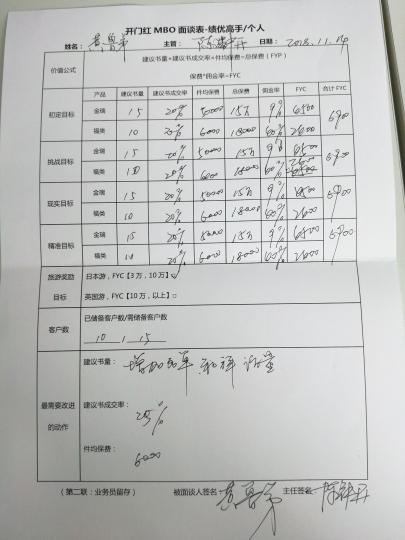 开门红 MBO 面谈表-绩优高手/个人
姓名： 主管： 日期：2018.11.14
价值公式 建议书量*建议书成交率*件均保费=总保费（FYP）
保费*佣金率=FYC
产品 建议书量 建议书成交率 件均保费 总保费 佣金率 FYC 合计FYC
初定目标 金瑞 15 20% 50000 15万 9% 6500
福类 10 20% 6000 18000 2600
挑战目标 金瑞 15 20% 50000 15万 9% 6500
福类 10 20% 6000 18000
现实目标 金瑞 15 20% 50000 15万 9% 6500
福类 10 20% 6000 18000 2600
精准目标 金瑞 15 20% 5000 15万 9% 6500
福类 10 20% 6000 18000 2600
旅游奖励 日本游，FYC【3 万，10 万】
目标 英国游，FYC【10 万，以上】□
客户数 已储备客户数/需储备客户数
10 / 15
最需要改进的动作
建议书量：
建议书成交率：
25%
件均保费：
6000
（第二联：业务员留存） 被面谈人签名： 主任签名：